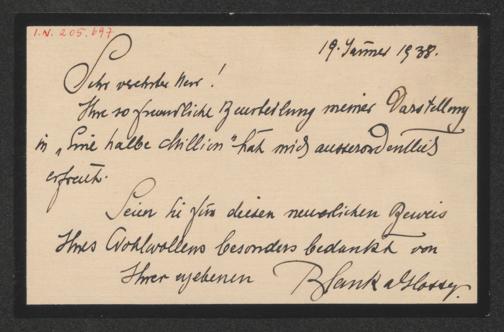 I.N. 205.697
19. Jänner 1938.
Sehr verehrter Herr!
Ihre so freundliche Beurteilung meiner Darstellung
in "Eine halbe Million" hat mich ausserordentlich
erfreut.
Seien Sie für diesen neuerlichen Beweis
Ihres Wohlwollens besonders bedankt von
Ihrer ergebenen Blanka Glossy.